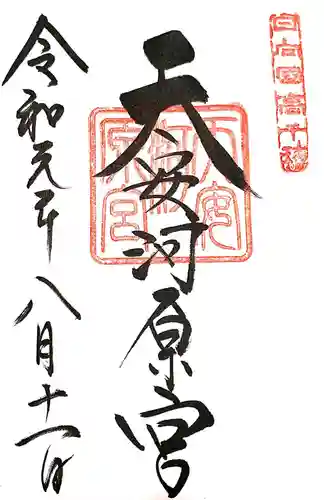 日向國高千穂
天安河原宮
令和元年八月十一日